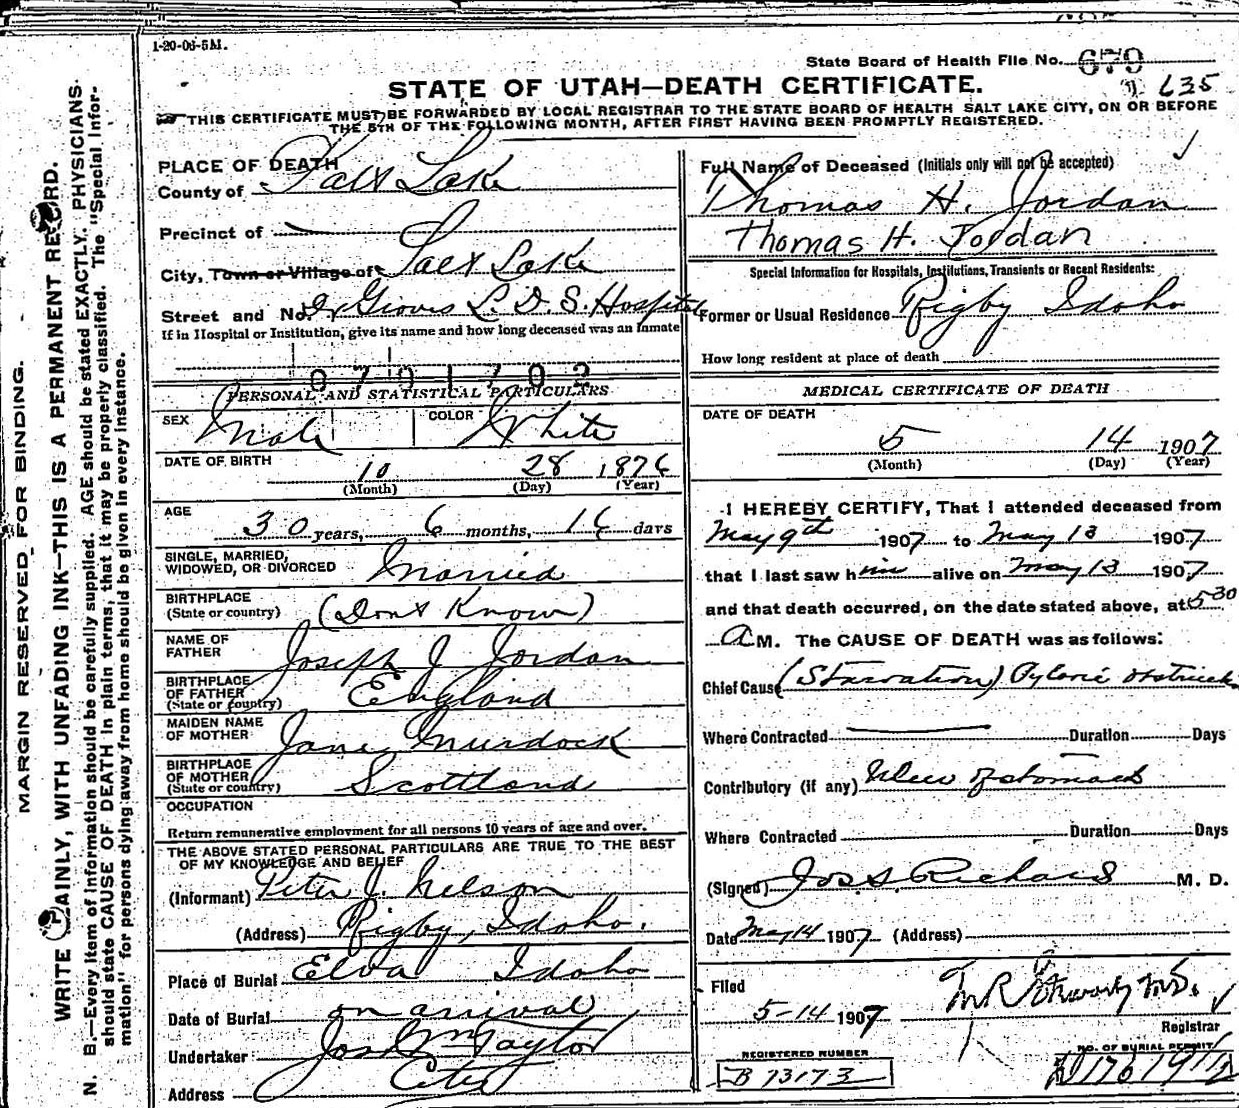 1-20-06-5M.
State Board of Health File No. 679
635
STATE OF UTAH—DEATH CERTIFICATE.
THIS CERTIFICATE MUST BE FORWARDED BY LOCAL REGISTRAR TO THE STATE BOARD OF HEALTH SALT LAKE CITY, ON OR BEFORE
THE 5TH OF THE FOLLOWING MONTH, AFTER FIRST HAVING BEEN PROMPTLY REGISTERED.
MARGIN RESERVED FOR BINDING.
WRITE PLAINLY, WITH UNFADING INK—THIS IS A PERMANENT RECORD.
N. B.—Every item of information should be carefully supplied. AGE should be stated EXACTLY. PHYSICIANS
should state CAUSE OF DEATH in plain terms, that it may be properly classified. The "Special Infor-
mation" for persons dying away from home should be given in every instance.
PLACE OF DEATH
County of Salt Lake
Precinct of
City, Town or Village of Salt Lake
Street and No. Groves L. D. S. Hospital
If in Hospital or Institution, give its name and how long deceased was an Inmate
0701702
PERSONAL AND STATISTICAL PARTICULARS
SEX Male COLOR White
DATE OF BIRTH
10 28 1876
(Month) (Day) (Year)
AGE
30 years, 6 months, 16 days
SINGLE, MARRIED,
WIDOWED, OR DIVORCED Married
BIRTHPLACE
(State or country) (Dont Know)
NAME OF
FATHER Joseph J Jordan
BIRTHPLACE
OF FATHER England
(State or country)
MAIDEN NAME
OF MOTHER Jane Murdock
BIRTHPLACE
OF MOTHER Scottland
(State or country)
OCCUPATION
Return remunerative employment for all persons 10 years of age and over.
THE ABOVE STATED PERSONAL PARTICULARS ARE TRUE TO THE BEST
OF MY KNOWLEDGE AND BELIEF
(Informant) Peter J. Nelson
(Address) Rigby, Idaho.
Place of Burial Elva Idaho
Date of Burial on arrival
Undertaker Jos Wm Taylor
Address City
Full Name of Deceased (Initials only will not be accepted)
Thomas H. Jordan
Thomas H. Jordan
Special Information for Hospitals, Institutions, Transients or Recent Residents:
Former or Usual Residence Rigby Idaho
How long resident at place of death
MEDICAL CERTIFICATE OF DEATH
DATE OF DEATH
5 14 1907
(Month) (Day) (Year)
I HEREBY CERTIFY, That I attended deceased from
May 9th 1907 to May 13 1907
that I last saw him alive on May 13 1907
and that death occurred, on the date stated above, at 5 30
A M. The CAUSE OF DEATH was as follows:
Chief Cause (Starvation) Pyloric obstruct
Where Contracted Duration Days
Contributory (if any) Ulcer of stomach
Where Contracted Duration Days
(Signed) Jos S Richards M. D.
Date May 14 1907 (Address)
Filed
5-14 1907
Registrar
REGISTERED NUMBER
B 73173
NO. OF BURIAL PERMIT